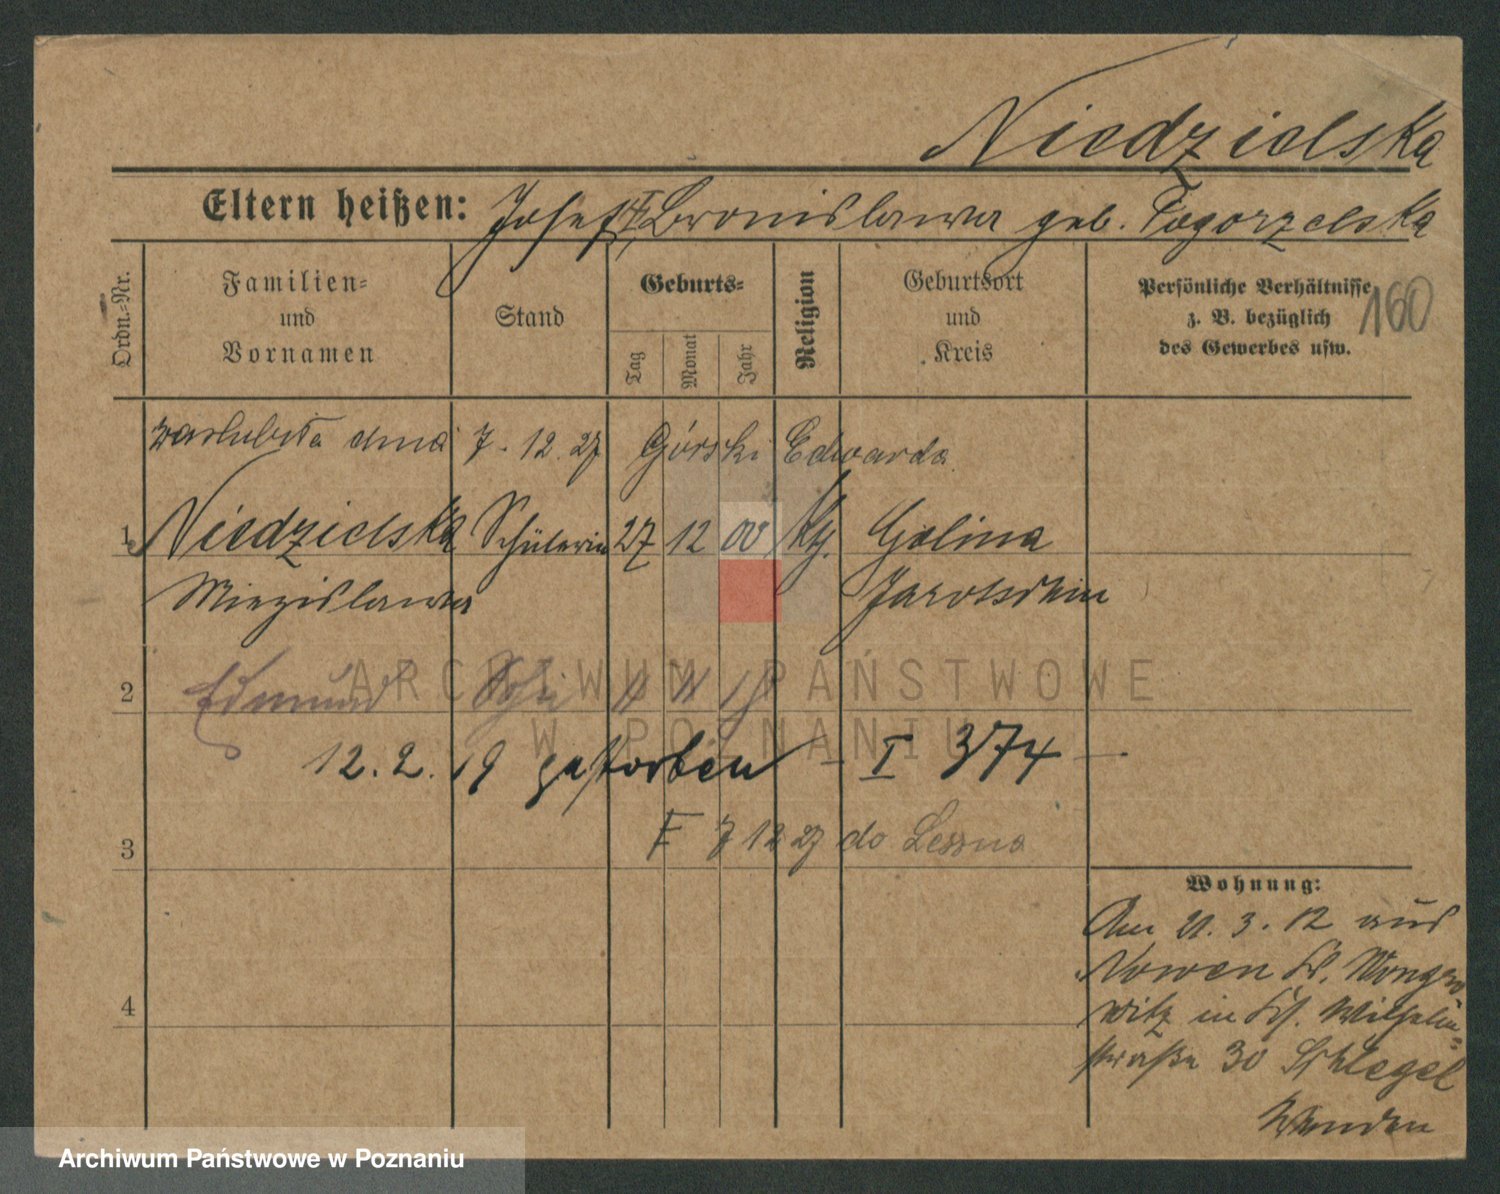 Niedzielska
Eltern heißen: Josef, Bronislawa geb. Pogorzelska
Ordn.-Nr.
Familien-
und
Vornamen
Stand
Geburts-
Tag
Monat
Jahr
Religion
Geburtsort
und
Kreis
Persönliche Verhältnisse
z. B. bezüglich
des Gewerbes usw.
160
zaślubiła dnia 7.12.27 Górski Edwarda
1 Niedzielska Schülerin 27 12 00 Kth. Golina
Mieczislawa Jarotschin
2 Edmund
12.2.19 gestorben – I 374 –
7 12 27 do Leszna
3
4
Wohnung:
Am 21.3.12 aus
Nowen Kr. Wongro
witz in Wilhelm-
straße 30 Schlegel
ARCHIWUM PAŃSTWOWE
W POZNANIU
Archiwum Państwowe w Poznaniu